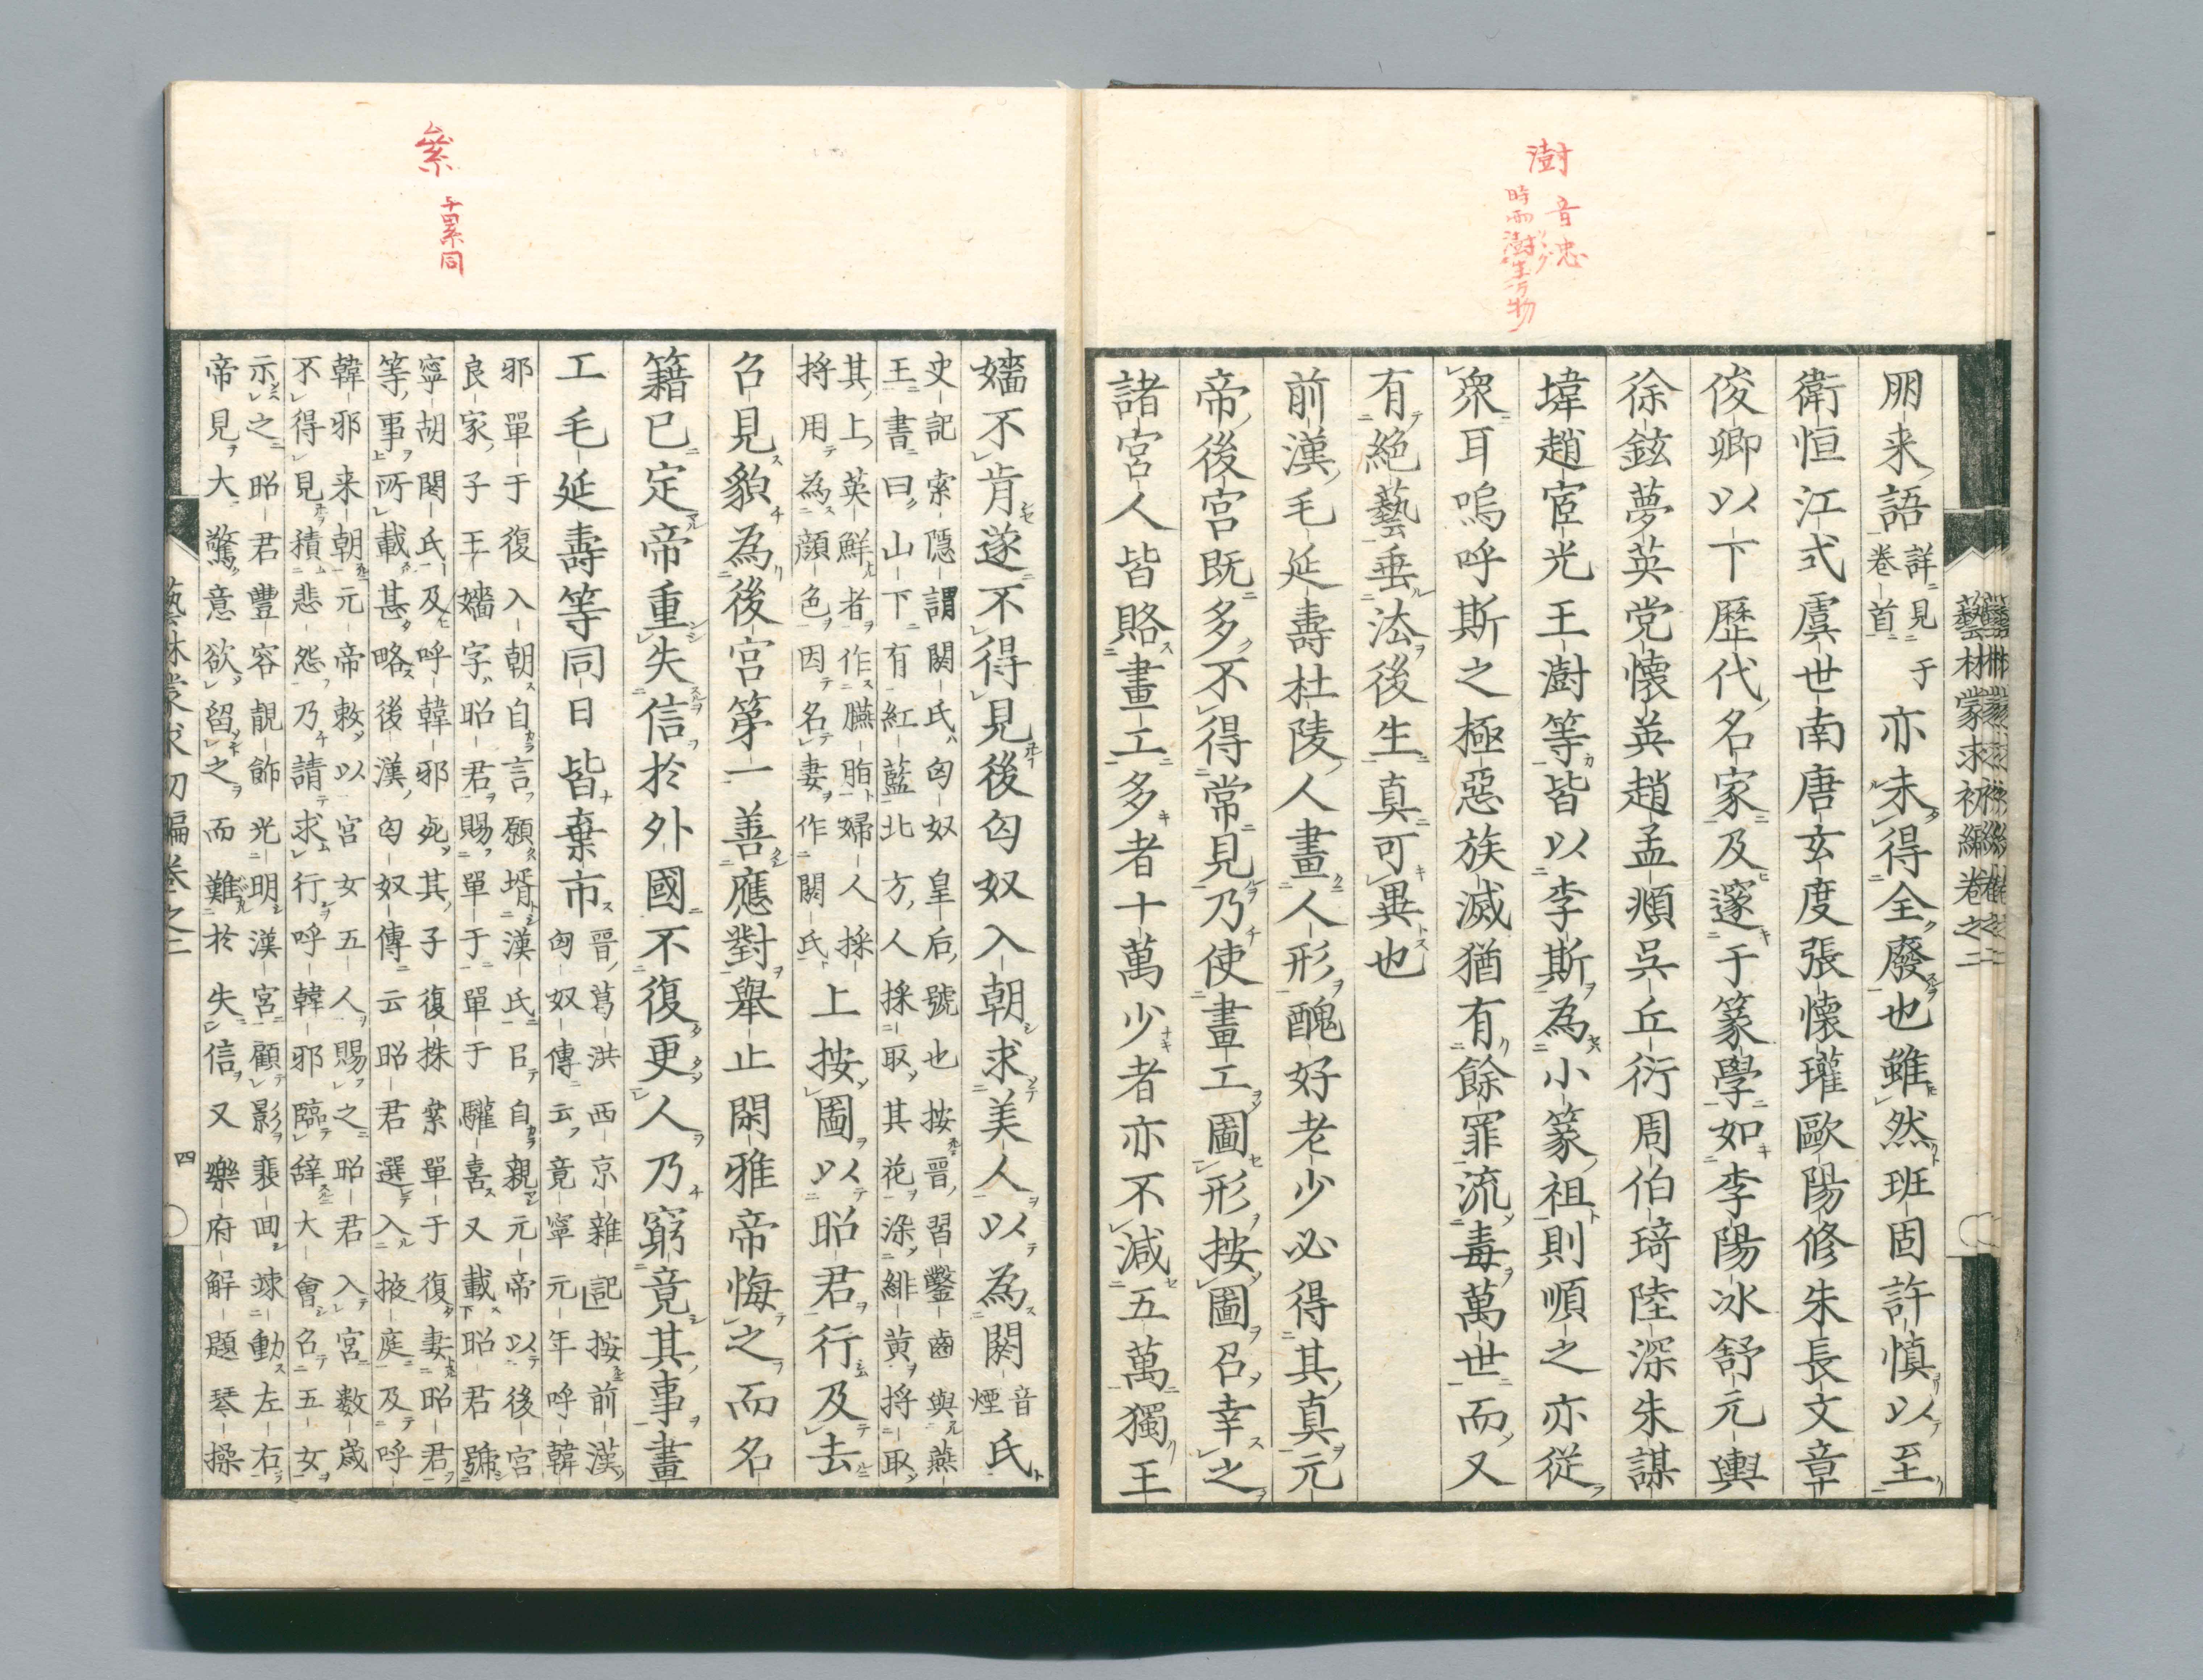 澍 音忠
時雨澍生万物
朋来語詳見于卷首亦未得全廢也雖然班固許慎以至
衛恒江式虞世南唐玄度張懷瓘歐陽修朱長文章
俊卿以下歷代名家及邃于篆學如李陽冰舒元輿
徐鉉夢英党懷英趙孟頫吳丘衍周伯琦陸深朱謀
㙔趙宧光王澍等皆以李斯為小篆祖則順之亦從
衆耳嗚呼斯之極惡族滅猶有餘罪流毒萬世而又
有絕藝垂法後生真可異也
前漢毛延壽杜陵人畫人形醜好老少必得其真元
帝後宮既多不得常見乃使畫工圖形按圖召幸之
諸宮人皆賂畫工多者十萬少者亦不減五萬獨王
藝林蒙求初編卷之二
絫 与累同
嬙不肯遂不得見後匈奴入朝求美人以為閼音煙氏
史記索隱謂閼氏匈奴皇后號也按晋習鑿齒與燕
王書曰山下有紅藍北方人採取其花染緋黄捋取
其上英鮮者作臙脂婦人採
捋用為顔色因名妻作閼氏
上按圖以昭君行及去
召見貌為後宮第一善應對舉止閑雅帝悔之而名
籍已定帝重失信於外國不復更人乃窮竟其事畫
工毛延壽等同日皆棄市
晋葛洪西京雜記按前漢
匈奴傳云竟寧元年呼韓
邪單于復入朝自言願壻漢氏㠯自親元帝以後宮
良家子王嬙字昭君賜單于單于驩喜又載昭君號
寧胡閼氏及呼韓邪死其子復株絫單于復妻昭君
等事所載甚略後漢匈奴傳云昭君選入掖庭及呼
韓邪来朝元帝敕以宮女五人賜之昭君入宮數歳
不得見積悲怨乃請求行呼韓邪臨辭大會召五女
示之昭君豐容靚飾光明漢宮顧影裴回竦動左右
帝見大驚意欲留之而難於失信又樂府解題琴操
藝林蒙求初編卷之二 四